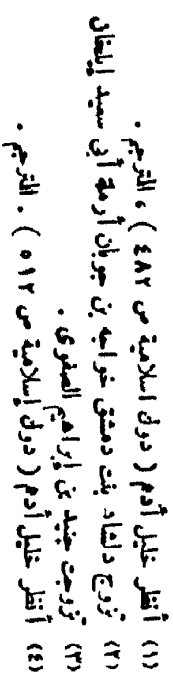 (١) أنظر خليل أدم ( دول اسلامية ص ٤٨٢ ) ، المترجم .
(٢) تزوج دلشاد بنت دمشق خواجه بن جوبان أرملة أبى سعيد إيلخان
(٣) تزوجت جنيد بن إبراهيم الصفوى .
(٤) أنظر خليل أدم ( دول إسلامية ص ٥١٢ ) . المترجم .